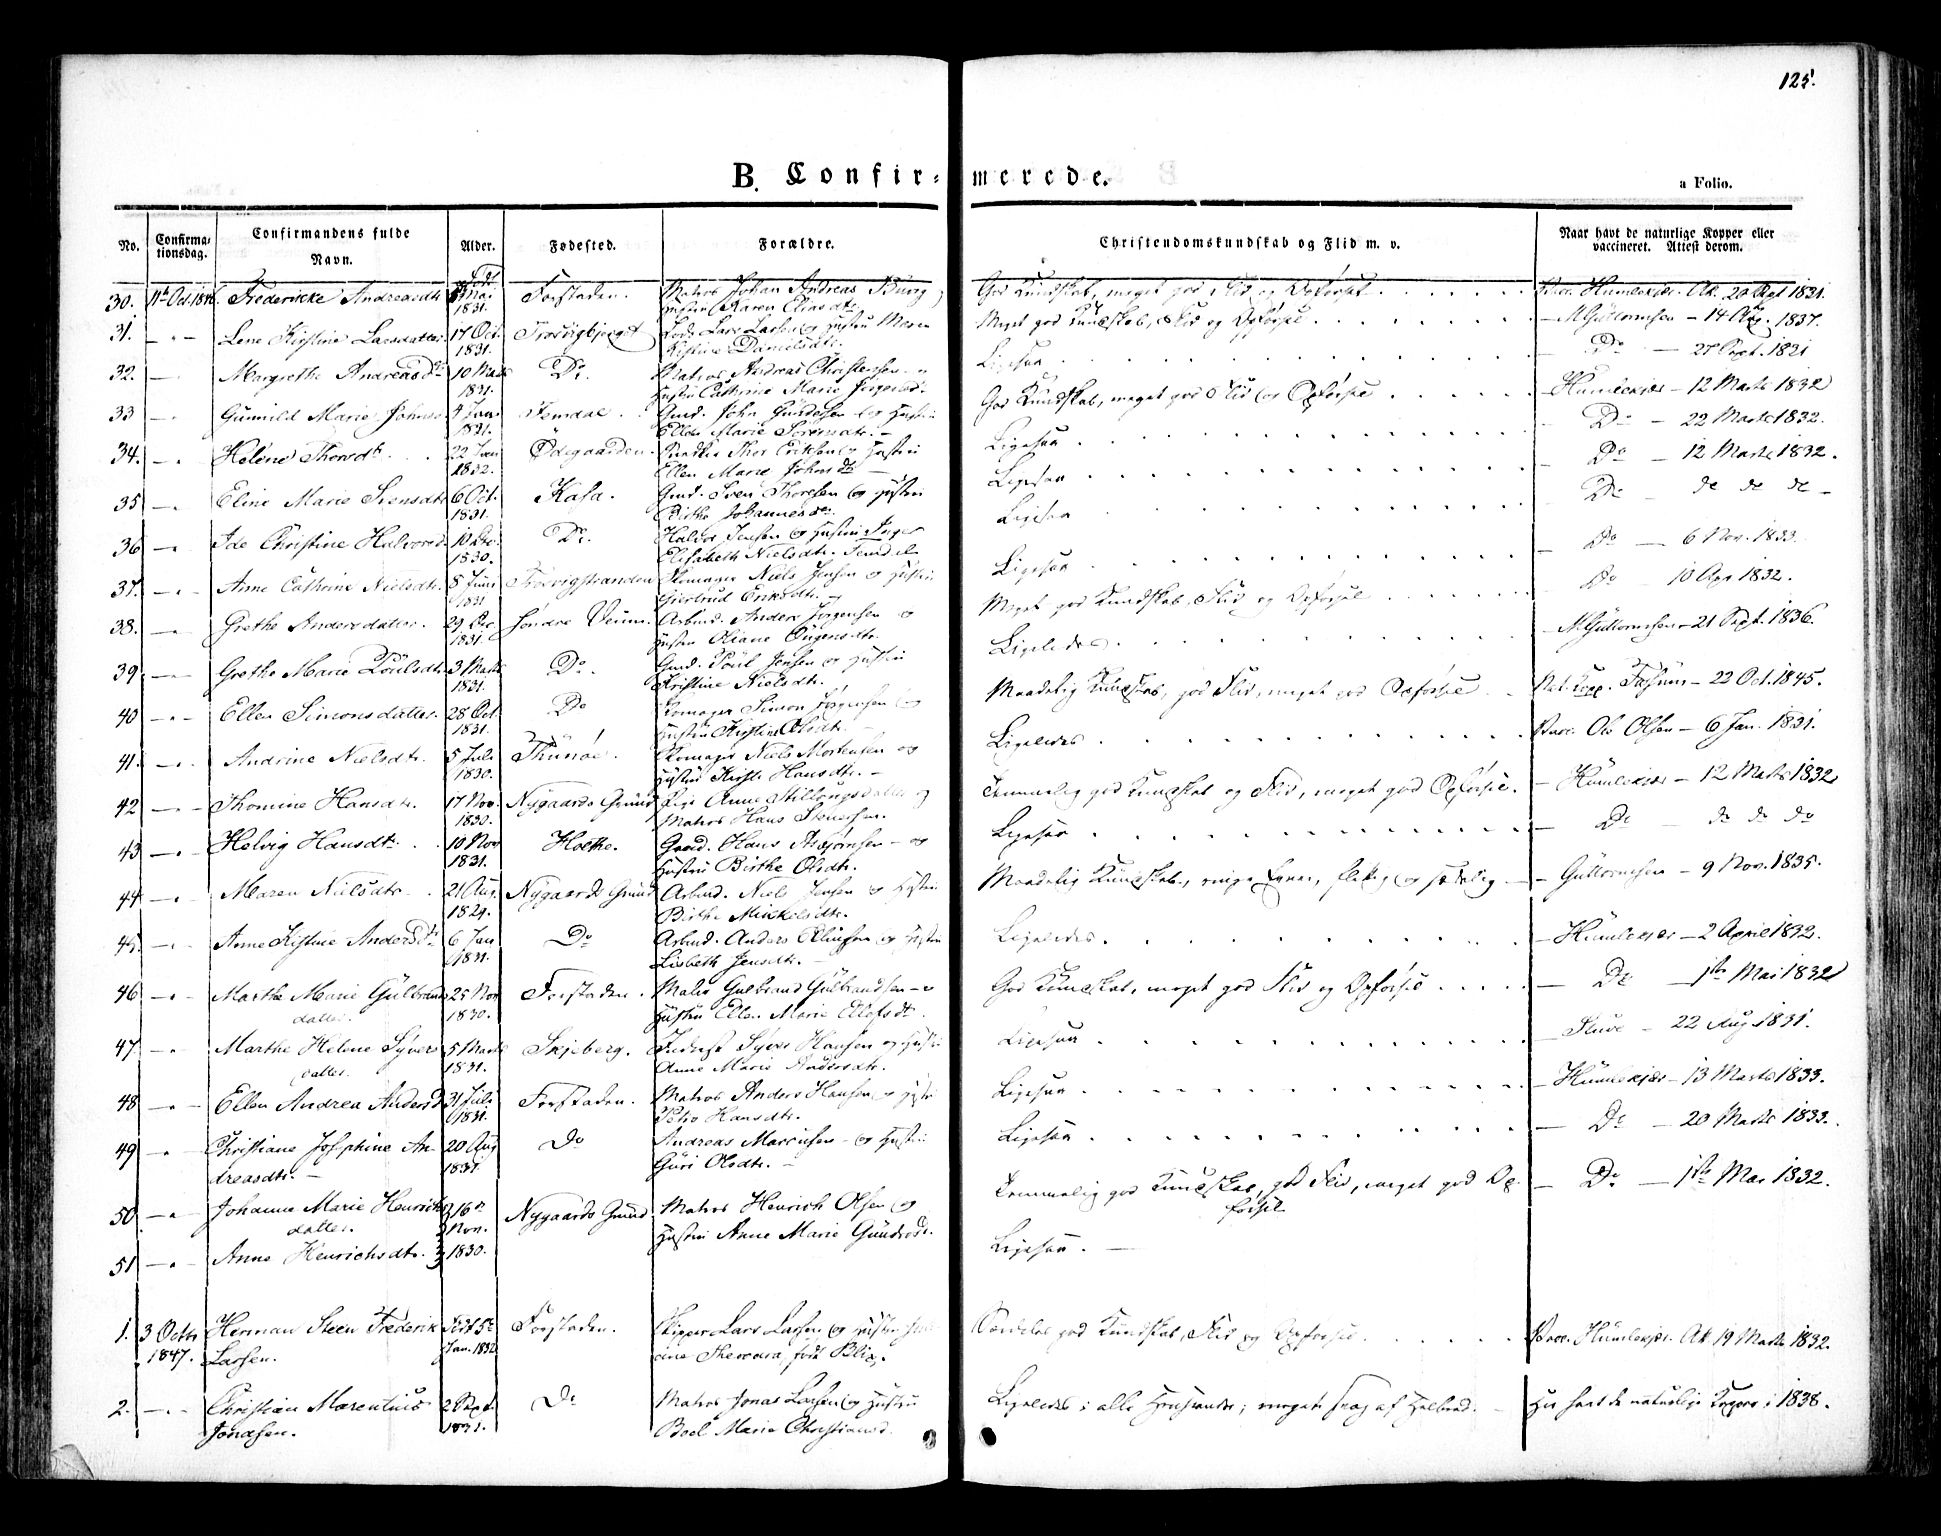 125.
B. Confirmerede.
a Folio.
No. Confirmationsdag. Confirmandens fulde Navn. Alder. Fødested. Forældre. Christendomskundskab og Flid m. v. Naar havt de naturlige Kopper eller vaccineret. Attest derom.
30. 11te Oct. 1846. Fredericke Andreasdtr Mai 1831. Forstaden. Matros Johan Andreas Burg
Hustru Karen Eliasdtr. God Kundskab, meget god Flid og Opførsel. Vacc. Humlekjær. At. 20 Sept 1831.
31. — " — Lene Kirstine Larsdatter 17 Oct. 1831. Torvigbjerget Lods Lars Larsen og Hustru Maren
Kistine Danielsdtr. Meget god Kundskab, Flid og Opførsel. — M Guttormsen — 14 Aug. 1837.
32. — Margrethe Andreasdtr 10 Marts 1831. Do. Matros Andreas Christensen
Hustru Cathrine Marie Jørgensdtr. Ligesaa — Do — 27 Sept. 1831
33 — Gunnild Marie Johnsd 4 Jan. 1831. Temdal Gmd. John Gundersen og Hustru
Ellen Marie Sørensdtr. — God Kundskab, meget god Flid og Opførsel — Humlekjær — 12 Marts 1832
34. — " Helene Thorsdtr. 22 Jan 1832. Ødegaarden. Thor Eriksen og Hustru
Ellen Marie Johnsdtr — Ligesaa — Do — 22 Marts 1832.
35 — " Eline Marie Svensdtr 6 Oct. 1831. Kasa. Gmd. Sven Thoresen og Hustru
Birthe Johannesdtr. Ligesaa — Do — 12 Marts 1832.
36 — " Ide Christine Halvorsd. 10 1830. Do. Halvor Jensen og Hustru Inger
Elisabeth Nielsdtr. Temdal. Ligesaa Do — de de de —
37. — " Anne Cathrine Nielsdtr. 8 Juni 1831 Torvigstranden Skomager Niels Jensen og Hustru
Giertrud Eriksdtr. Ligesaa — Do — 6 Nov. 1833.
38. — " Grethe Andersdatter. 29 1831. Søndre Veum. Arbmd. Anders Jørgensen og
Hustru Oliane Meget god Kundskab, Flid og Opførsel — Do — 10 Apr 1832.
39 — " Grethe Marie Poulsdtr. 3 Marts 1831. Do. Gmd. Poul Jensen og Hustru
Kristine Nielsdtr. Ligeledes. — M Guttormsen — 21 Sept. 1836.
40 — " — Ellen Simonsdatter. 28 Oct. 1831. Do Skomager Simon Jørgensen og
Hustru Kirstine Olsdtr. Maadelig Kundskab, god Flid, meget god Opførsel Nat. Kopp. — 22 Oct. 1845.
41. — " Andrine Nielsdtr. 5 Juli 1830. Thunøe. Skomager Niels Mortensen og
Hustru Kirsti Hansdtr. — Ligeledes Vacc. Ole Olsen — 6 Jan. 1831.
42 — " Thomine Hansdtr. 17 Nov. 1830. Nygaards Grund Pige Anne og
Matros Hans Temmelig god Kundskab og Flid, meget god Opførsel. — Humlekjær — 12 Marts 1832
43 — " — Helvig Hansdtr. 10 Nov 1831. Holthe. Gmd. Hans Asbjørnsen — og
Hustru Birthe Olsdtr. Ligesaa — Do — do do do
44 — " Maren Nielsdtr. 21 Aug. 1829. Nygaards Grund Arbmd. Niels Jensen og Hustru
Birthe Mickelsdtr. Maadelig Kundskab, ringe Evner, flittig og sædelig — — Guttormsen — 9 Nov. 1835.
45. — " Anne Kistine Andersdtr 6 Jan 1831. Do Arbmd. Anders og Hustru
Lisbeth Jensdtr. — Ligeledes. — Humlekjær — 2 April 1832.
46 — " Marthe Marie Gulbrandsdatter. 25 Nov 1830. Forstaden. Matros Gulbrand Gulbrandsen — og
Hustru Ellen Marie Ellefsdtr. God Kundskab, meget god Flid og Opførsel — Do — 1ste Mai 1832
47 — " Marthe Helene Syversdatter. 5 Marts 1831. Skjeberg. Syver Hansen og Hustru
Anne Marie Andersdtr. Ligesaa — 22 Aug 1831.
48 — " Ellen Andrea Andersd 31 Juli 1831. Forstaden. Matros Anders Hansen og Hustru
Hansdtr. Ligesaa — Humlekjær — 13 Marts 1833.
49 — " Christiane Josephine Andreasdtr. — 20 Aug 1831. Do Andreas Marcussen — og Hustru
Guri Olsdtr. — Ligesaa — Do — 20 Marts 1833.
50 — " Johanne Marie Henriksdatter. 16de Nov. Nygaards Grund Matros Henrich Olsen og
Hustru Anne Marie Temmelig god Kundskab, god Flid, meget god Opførsel — Do — 1ste Mai 1832.
51 — " — Anne Henrichsdtr. 1830. Ligesaa. —
1. 3 Octbr 1847. Herman Steen Frederik Larsen. Født 5te Jan. 1832 Forstaden. Skipper Lars Larsen og Hustru
født Blix. Særdeles god Kundskab, Flid og Opførsel Vacc. Humlekjær. At. 19 Marts 1832.
2. — " — Christian Marentius Jonassen. 2 Sept. 1831. Do Matros Jonas Larsen og Hustru
Boel Marie Christiansd. Ligeledes i alle Henseender; meget svag af Helbred. — Har havt de naturlige Kopper i 1838.